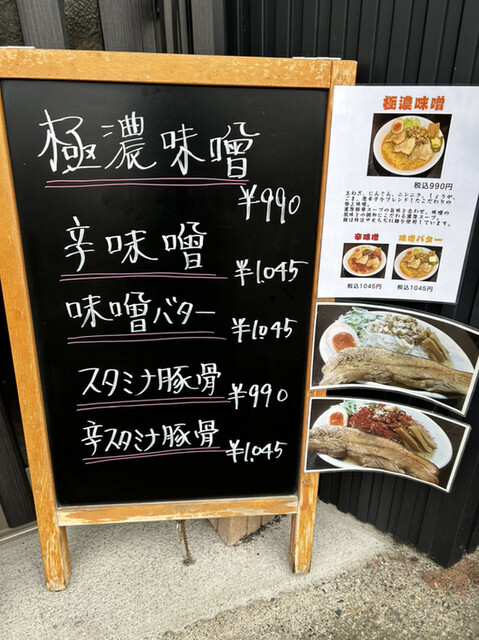 極濃味噌
¥990
辛味噌
¥1.045
味噌バター
¥1.045
スタミナ豚骨
¥990
辛スタミナ豚骨
¥1.045
極濃味噌
税込990円
玉ねぎ、にんじん、ニンニク、しょうが、
辛味噌
味噌バター
税込1045円
税込1045円